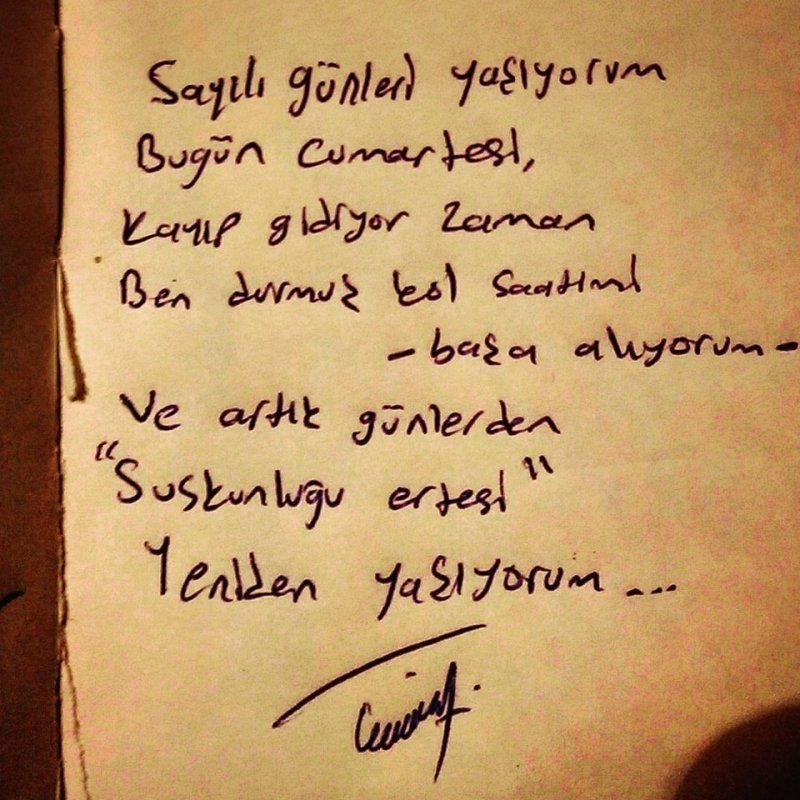 Sayılı günleri yaşıyorum
Bugün Cumartesi,
Kayıp gidiyor zaman
Ben durmuş kol saatimi
- başa alıyorum -
Ve artık günlerden
"Suskunluğu ertesi"
Yeniden yaşıyorum ...